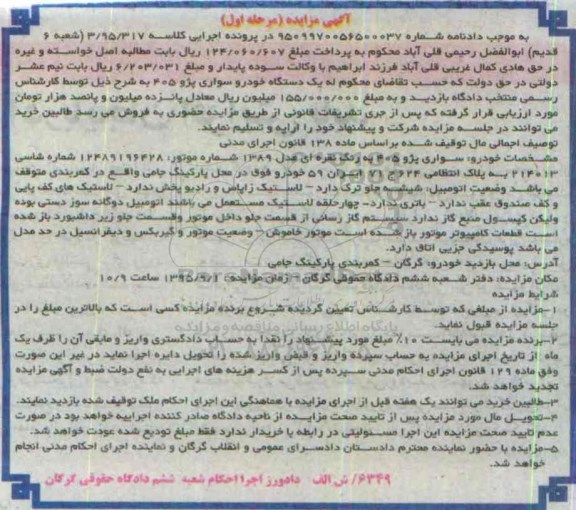 آگهی مزایده (مرحله اول)
به موجب دادنامه شماره ۹۵۰۹۹۷۰۰۵۶۵۰۰۰۳۷ در پرونده اجرایی کلاسه ۳/۹۵/۳۱۷ (شعبه ۶
قدیم) ابوالفضل رحیمی قلی آباد محکوم به پرداخت مبلغ ۱۲۴/۰۶۰/۶۰۷ ریال بابت مطالبه اصل خواسته و غیره
در حق هادی کمال غریبی قلی آباد فرزند ابراهیم با وکالت سوده پایدار و مبلغ ۶/۲۰۳/۰۳۱ ریال بابت نیم عشر
دولتی در حق دولت که حسب تقاضای محکوم له یک دستگاه خودرو سواری پژو ۴۰۵ به شرح ذیل توسط کارشناس
رسمی منتخب دادگاه بازدید و به مبلغ ۱۵۵/۰۰۰/۰۰۰ میلیون ریال معادل پانزده میلیون و پانصد هزار تومان
مورد ارزیابی قرار گرفته که پس از جری تشریفات قانونی از طریق مزایده حضوری به فروش می رسد طالبین خرید
می توانند در جلسه مزایده شرکت و پیشنهاد خود را ارایه و تسلیم نمایند.
توصیف اجمالی مال توقیف شده براساس ماده ۱۳۸ قانون اجرای مدنی
مشخصات خودرو: سواری پژو ۴۰۵ به رنگ نقره ای مدل ۱۳۸۹ شماره موتور: ۱۲۴۸۹۱۹۶۴۲۸ شماره شاسی
۲۱۴۰۱۳ به پلاک انتظامی ایران ۵۹ خودرو فوق در محل پارکینگ جامی واقع در کمربندی متوقف
می باشد وضعیت اتومبیل: شیشه جلو ترک دارد – لاستیک زاپاس و رادیو پخش ندارد – لاستیک های کف پایی
و کف صندوق عقب ندارد – باتری ندارد- چهارحلقه لاستیک مستعمل می باشد اتومبیل دوگانه سوز دستی بوده
ولیکن کپسول منبع گاز ندارد سیستم گاز رسانی از قسمت جلو داخل موتور وقسمت جلو زیر داشبورد باز شده
است قطعات کامپیوتر موتور باز شده است موتور خاموش – وضعیت موتور و گیربکس و دیفرانسیل در حد مدل
می باشد پوسیدگی جزیی اتاق دارد.
آدرس: محل بازدید خودرو: گرگان – کمربندی پارکینگ جامی
مکان مزایده: دفتر شعبه ششم دادگاه حقوقی گرگان – زمان مزایده: ۱۳۹۵/۹/۱۰ ساعت ۱۰/۹
شرایط مزایده
۱-مزایده از مبلغی که توسط کارشناس تعیین گردیده شروع برنده مزایده کسی است که بالاترین مبلغ را در
جلسه مزایده قبول نماید.
۲-برنده مزایده می بایست ۱۰٪ مبلغ مورد پیشنهاد را نقدا به حساب دادگستری واریز و مابقی آن را ظرف یک
ماه از تاریخ اجرای مزایده به حساب سپرده واریز و قبض واریز شده را تحویل دایره اجرا نماید در غیر این صورت
وفق ماده ۱۲۹ قانون اجرای احکام مدنی سپرده پس از کسر هزینه های اجرایی به نفع دولت ضبط و آگهی مزایده
تجدید خواهد شد.
۳-طالبین خرید می توانند یک هفته قبل از اجرای مزایده با هماهنگی این اجرای احکام ملک توقیف شده بازدید نمایند.
۴-تحویل مال مورد مزایده پس از تایید صحت مزایده از ناحیه دادگاه صادر کننده اجراییه خواهد بود در صورت
عدم تایید صحت مزایده این اجرا مسئولیتی در رابطه با خریدار ندارد فقط مبلغ تودیع شده عودت خواهد شد.
۵-مزایده با حضور نماینده محترم دادستان دادسرای عمومی و انقلاب گرگان و نماینده اجرای احکام مدنی انجام
خواهد شد.
۶/۶۳۴۹ ش الف دادورز اجرا احکام شعبه ششم دادگاه حقوقی گرگان